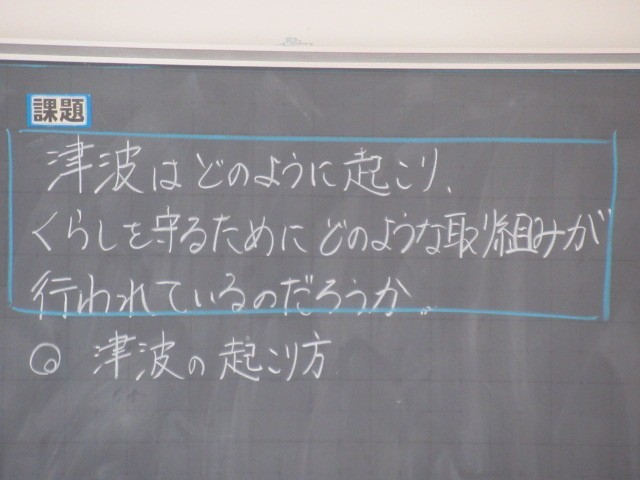 課題
津波はどのように起こり、
くらしを守るためにどのような取り組みが
行われているのだろうか。
◎ 津波の起こり方